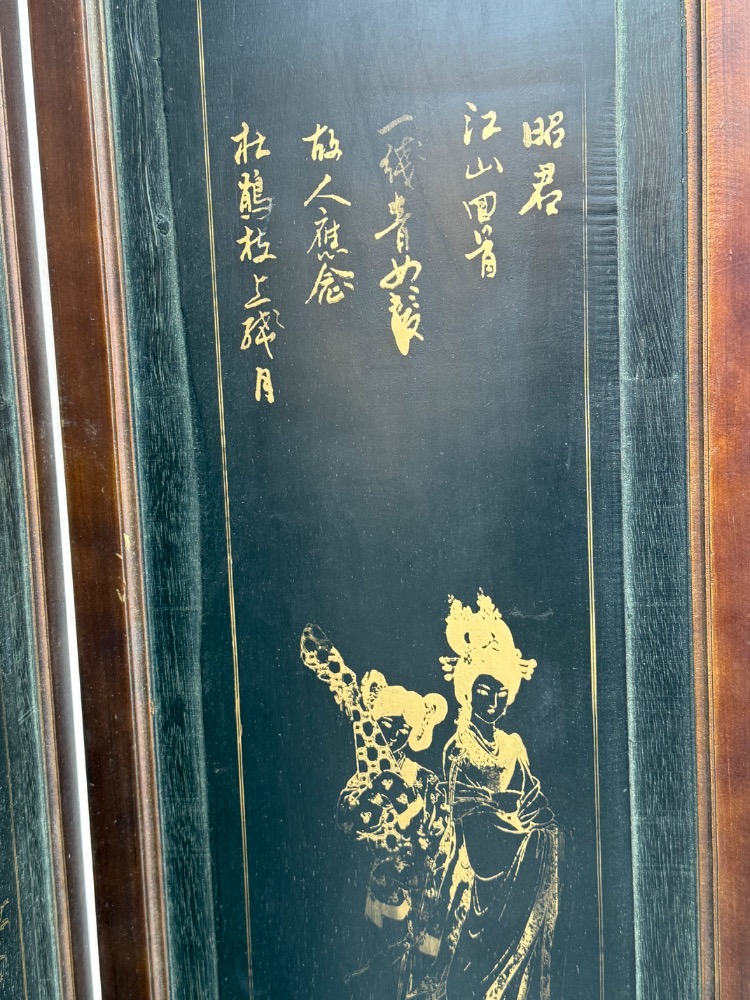 昭君
江山回首
一线青如髮
故人應念
杜鵑枝上残月